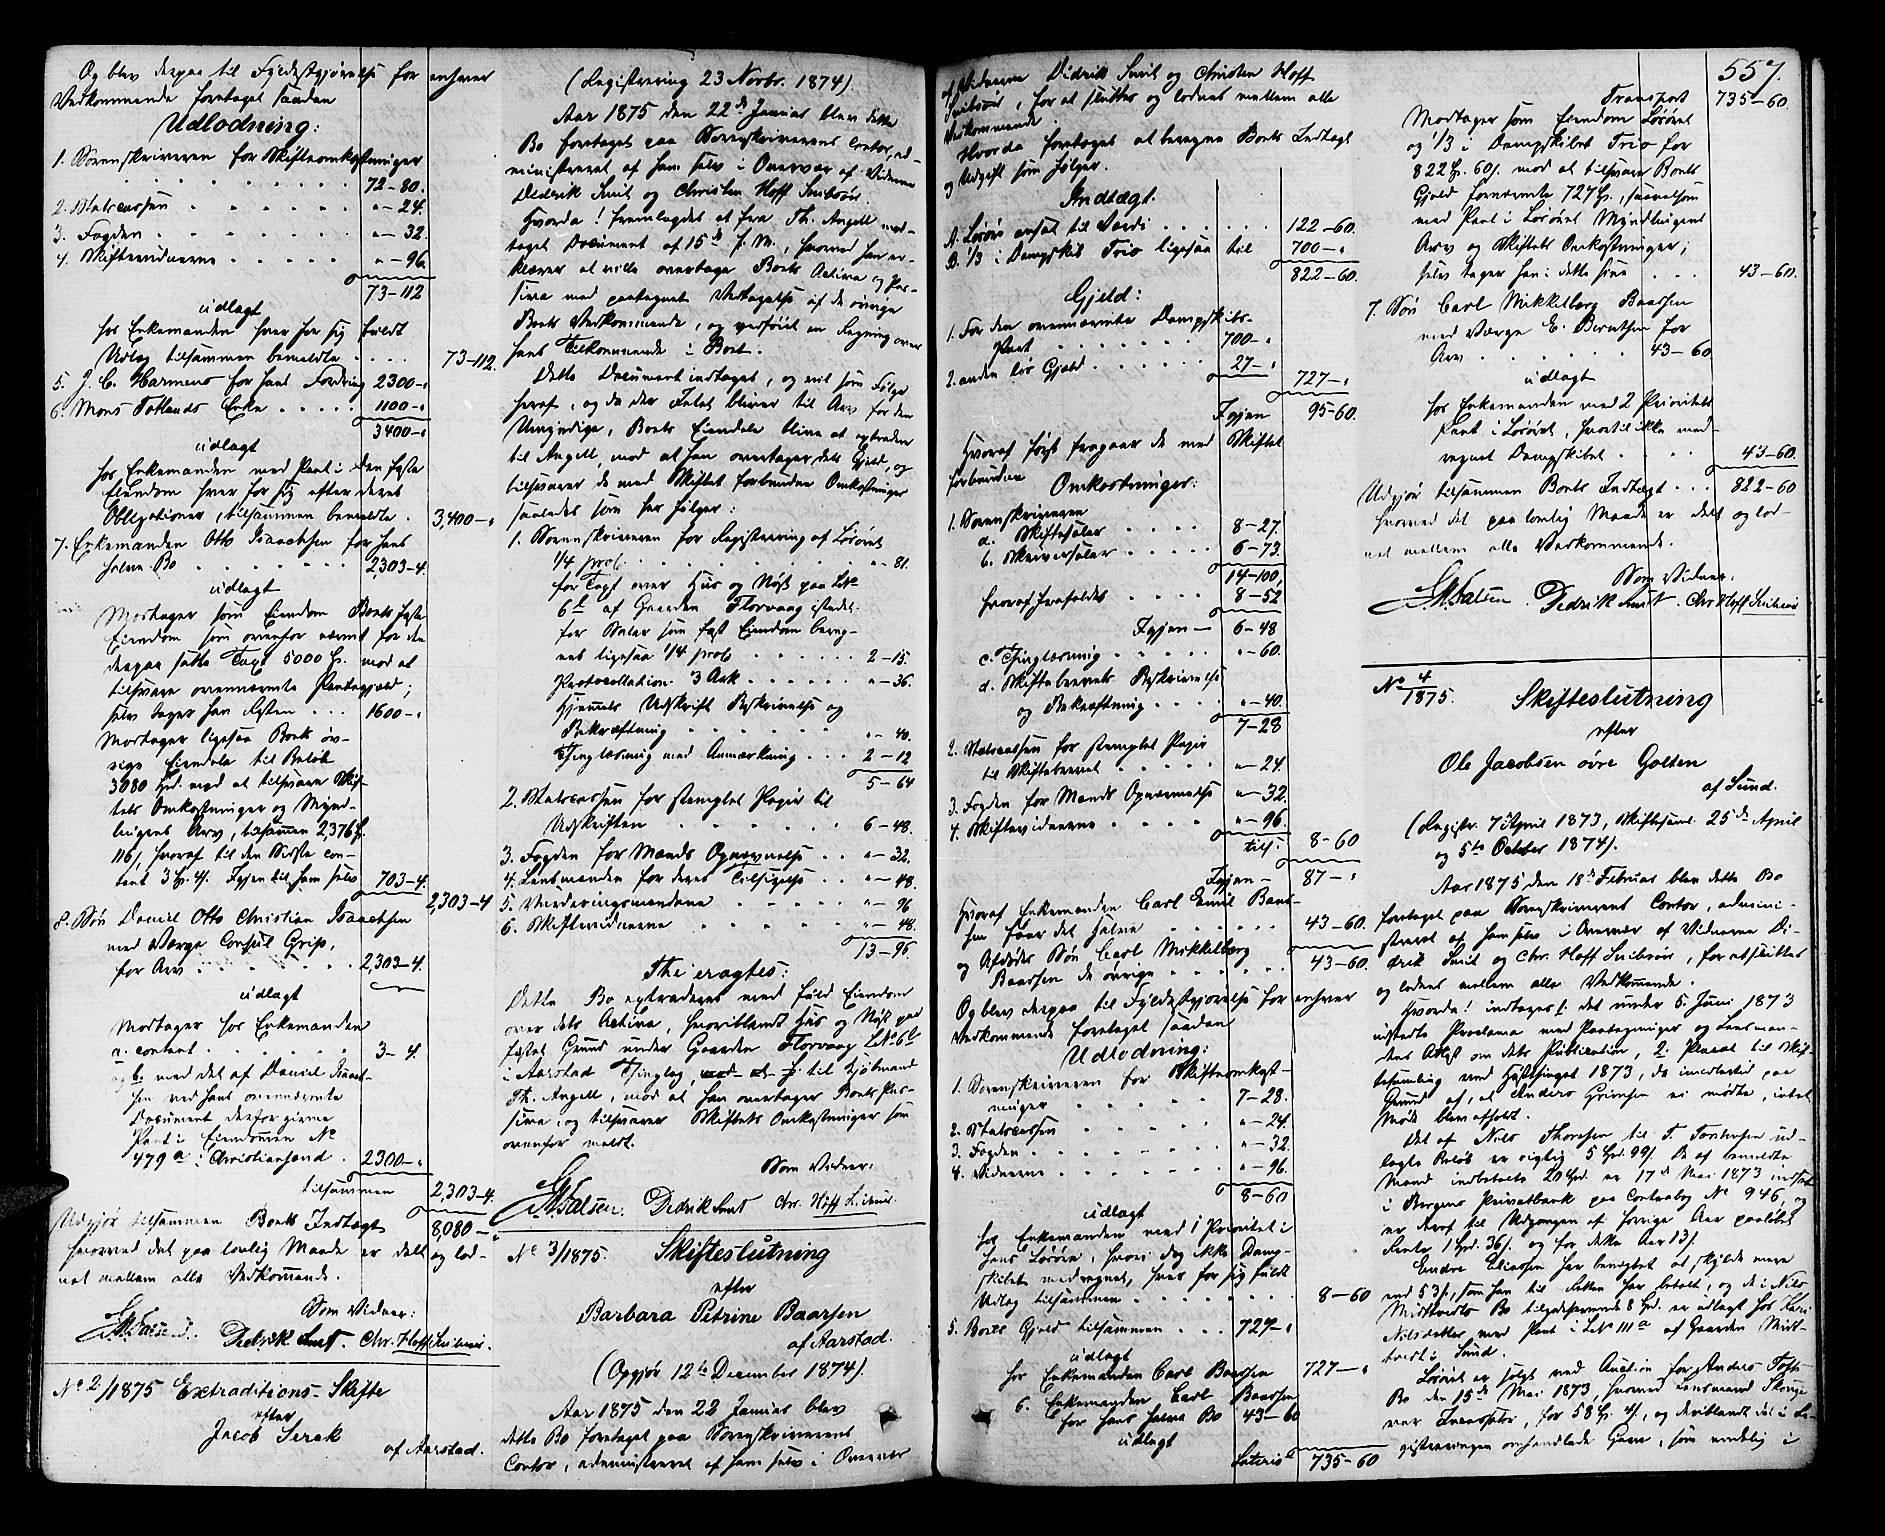 Og blev derpaa til Fyldestgjørelse for enhver
Vedkommende foretaget saadan
Udlodning:
1. Sorenskriveren for Skifteomkostninger
72-80.
2. Statscassen "-24.
3. Fogden "-32.
4. Skiftevidnerne "-96
73-112
udlagt
hos Enkemanden hver for sig fuldt
Udlæg tilsammen bemeldte 73-112.
5. J. C. Harmens for hans Fordring 2300-"
6. Mons Totlands Enke 1100-"
3400-"
udlagt
hos Enkemanden med Pant i den faste
Eiendom hver for sig efter deres
Obligationer, tilsammen bemeldte. 3,400-"
7. Enkemanden Otto Isaachsen for hans
halve Bo 2,303-4.
udlagt
Modtager som Eiendom Boets faste
Eiendom som ovenfor nævnt for den
derpaa satte Taxt 5000 Spd. mod at
tilsvare ovennævnte Pantegjæld;
selv tager han Resten 1600-"
Modtager ligesaa Boets øv-
rige Eiendele til Beløb
3080 Spd. mod at tilsvare Skif-
tets Omkostninger og Mynd-
lingens Arv, tilsammen 2376 Spd.
116 s, hvoraf til den Sidste con-
tant 3 Sp. 4 s. Igjen til ham selv 703-4.
2,303-4
8. Søn Daniel Otto Christian Isaachsen
med Værge Consul Grip,
for Arv 2,303-4.
udlagt
Modtager hos Enkemanden
a. contant 3-4.
og b. med det af Daniel Isaach-
sen ved hans ovennævnte
Document derfor givne
Pant i Eiendommen No
479 a i Christiansand. 2300-"
tilsammen 2,303-4.
Udgjør tilsammen Boets Indtægt 8,080-"
hvorved det paa lovlig Maade er delt og lod-
net mellem alle Vedkommende.
Som Vidner:
Falsen. Didrik Smit. Chr. Hoff Snibsøer.
No 2/1875 Extraditions-Skifte
efter
Jacob
af Aarstad.
(Registrering 23 Novbr. 1874).
Aar 1875 den 22de Januar blev dette
Bo foretaget paa Sorenskriverens Contor, ad-
ministreret af ham selv i Overvær af Vidnerne
Didrik Smit og Christen Hoff Snibsøer.
Hvorda! fremlagdes et fra Th. Angell mod-
taget Document af 15de d. M., hvorved han er-
klærer at ville overtage Boets Activa og Pas-
siva med paategnet Vedtagelse af de øvrige
Boets Vedkommende, og vedføiet en Regning over
hans Tilkommende i Boet.
Dette Document indtaget, og vil som Følge
heraf, og da der Intet bliver til Arv for den
Umyndige, Boets Eiendele blive at extradere
til Angell, mod at han overtager dets Gjæld, og
tilsvarer de med Skiftet forbundne Omkostninger
saaledes som her følger:
1. Sorenskriveren for Registrering af Løsøret
1/4 proC "-81.
for Taxt over Hus og Nøst paa LNo
6b af Gaarden Florvaag istedet-
for Salær som fast Eiendom bereg-
net ligesaa 1/4 proC 2-15.
Protocollation 3 Ark "-36.
Hjemels Udskrift Beskrivelse og
Bekræftning "-40.
Thinglæsning med Anmærkning 2-12
5-64
2. Statscassen for stemplet Papir til
Udskriften 6-48.
3. Fogden for Mænds Opnævnelse "-32.
4. Lensmanden for deres Tilsigelse "-48.
5. Vurderingsmændene "-96
6. Skiftevidnerne "-48.
13-96
Thi eragtes:
Dette Bo extraderes med fuld Eiendom
over dets Activa, hvoriblandt Hus og Nøst paa
fæstet Grund under Gaarden Florvaag LNo 6b
i Aarstad Thinglag, til Kjøbmand
Th. Angell, mod at han overtager Boets Pas-
siva, og tilsvarer Skiftets Omkostninger som
ovenfor meldt.
Som Vidner:
Falsen. Didrik Smit Chr. Hoff Snibsøer.
No 3/1875. Skifteslutning
efter
Barbara Petrine Baarsen
af Aarstad.
(Opgjør 12te December 1874).
Aar 1875 den 22 Januar blev
dette Bo foretaget paa Sorenskriverens
Contor, administreret af ham selv i Overvær
af Vidnerne Didrik Smit og Christen Hoff
Snibsøer, for at sluttes og lodnes mellem alle
Vedkommende.
Hvorda foretoges at beregne Boets Indtægt
og Udgift som følger.
Indtægt.
A. Løsøre ansat til Værdi 122-60.
B. 1/3 i Dampskib Trio ligesaa til 700-"
822-60.
Gjeld:
1. For den ovennævnte Dampskibs-
Part 700-"
2. anden løs Gjeld 27-"
727-"
Igjen 95-60.
Hvoraf først fragaar de med Skiftet
forbundne Omkostninger:
1. Sorenskriveren
a. Skiftesalær 8-27.
b. Skriversalær 6-73.
14-100,
hvoraf frafaldes 8-52
Igjen- 6-48
c. Thinglæsning "-60.
d. Skiftebrevets Beskrivelse
og Bekræftning "-40.
7-28
2. Statscassen for stemplet Papir
til Skiftebrevet "-24.
3. Fogden for Mænds Opnævnelse "-32.
4. Skiftevidnerne "-96.
tils. 8-60
Igjen- 87-"
Hvoraf Enkemanden Carl Emil Baar-
sen faar det Halve 43-60.
og Afdødes Søn Carl Mikkelberg
Baarsen de øvrige 43-60.
Og blev derpaa til Fyldestgjørelse for enhver
Vedkommende foretaget saadan
Udlodning:
1. Sorenskriveren for Skifteomkost-
ninger 7-28.
2. Statscassen "-24.
3. Fogden "-32.
4. Vidnerne "-96.
8-60
udlagt
hos Enkemanden med 1 Prioritet i
hans Løsøre, hvori dog ikke Damp-
skibet medregnet, hver for sig fuldt
Udlæg tilsammen 8-60
5. Boets Gjeld tilsammen 727-"
udlagt
hos Enkemanden Carl Baarsen 727-"
6. Enkemanden Carl Baarsen
for hans halve Bo 43-60
udlagt
Lateris 735-60
557.
Transport 735-60.
Modtager som Eiendom Løsøret
og 1/3 i Dampskibet Trio for
822 Sp. 60 s. mod at tilsvare Boets
Gjeld fornævnte 727 Sp., saavelsom
med Pant i Løsøret Myndlingens
Arv og Skiftets Omkostninger;
selv tager han i dette sine 43-60.
7. Søn Carl Mikkelberg Baarsen
med Værge E. Berntsen for
Arv 43-60
udlagt
hos Enkemanden med 2 Prioritets
Pant i Løsøret, hvortil ikke med-
regnet Dampskibet 43-60.
Udgjør tilsammen Boets Indtægt 822-60
hvorved det paa lovlig Maade er delt og lod-
net mellem alle Vedkommende.
Som Vidner:
Falsen. Didrik Smit. Chr. Hoff Snibsøer
No 4/1875. Skifteslutning
efter
Ole Jacobsen øvre Golten
af Sund.
(Registr. 7 April 1873, Skiftesaml. 25de April
og 5te October 1874).
Aar 1875 den 18de Februar blev dette Bo
foretaget paa Sorenskriverens Contor, admini-
streret af ham selv i Overvær af Vidnerne Di-
drik Smit og Chr. Hoff Snibsøer, for at sluttes
og lodnes mellem alle Vedkommende.
Hvorda! indtages 1. det under 6 Juni 1873
udstedte Proclama med Paategninger og Lensman-
dens Attest om dets Publication, 2. Placat til Skif-
tesamling ved Høstthinget 1873, da imidlertid paa
Grund af, at Anders Grimsen ei mødte, intet
Møde blev afholdt.
Det af Nils Thoresen til T. Torstensen ud-
lagte Beløb er rigtig 5 Spd. 99 s. De af bemeldte
Mand indbetalte 20 Spd. er 17de Mai 1873 indsat
i Bergens Privatbank paa Contrabog No 946, og
er deraf til Udgangen af forrige Aar paaløbet
Rente 1 Spd. 36 s. og for dette Aar 13 s.
Endre Eliassen har benegtet at skylde mere
end 53 s, som han til Retten har betalt, og de i Nils
Midttveits Bo tilgodehavende 8 Spd. er udlagt hos Kari
Nilsdatter med Pant i LNo 111 a af Gaarden Midt-
tveit i Sund.
Løsøret er solgt ved Auction for Anders
Bo den 15de Mai 1873, hvorved Lensmand Skonge
var Incassator, for 58 Sp. 4 s, og deriblandt det i Re-
gistreringen omhandlede Garn, som endelig i